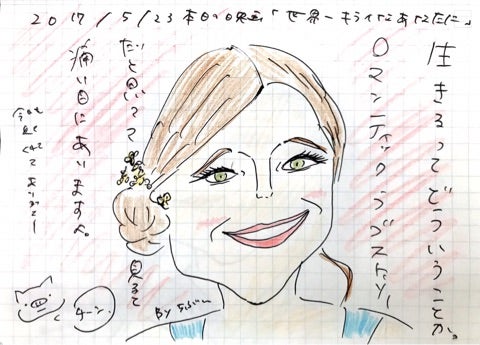 2017/5/23 本日の映画「世界一キライなあなたに」
生きるってどういうことか。
ロマンティックラブストーリー
だと思ってて見ると
痛い目にあいますよ。
今日も見てくれてありがとー
チーン。
by